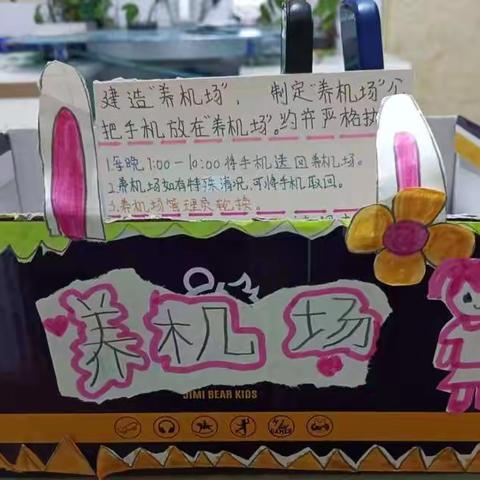 建造"养机场"，制定"养机场"公
把手机放在"养机场"。约并严格执
1.每晚7:00-10:00将手机送回养机场。
2.养机场如有特殊情况,可将手机取回。
3.养机场管理员轮换。
养机场
JIMI BEAR KIDS
GAMES